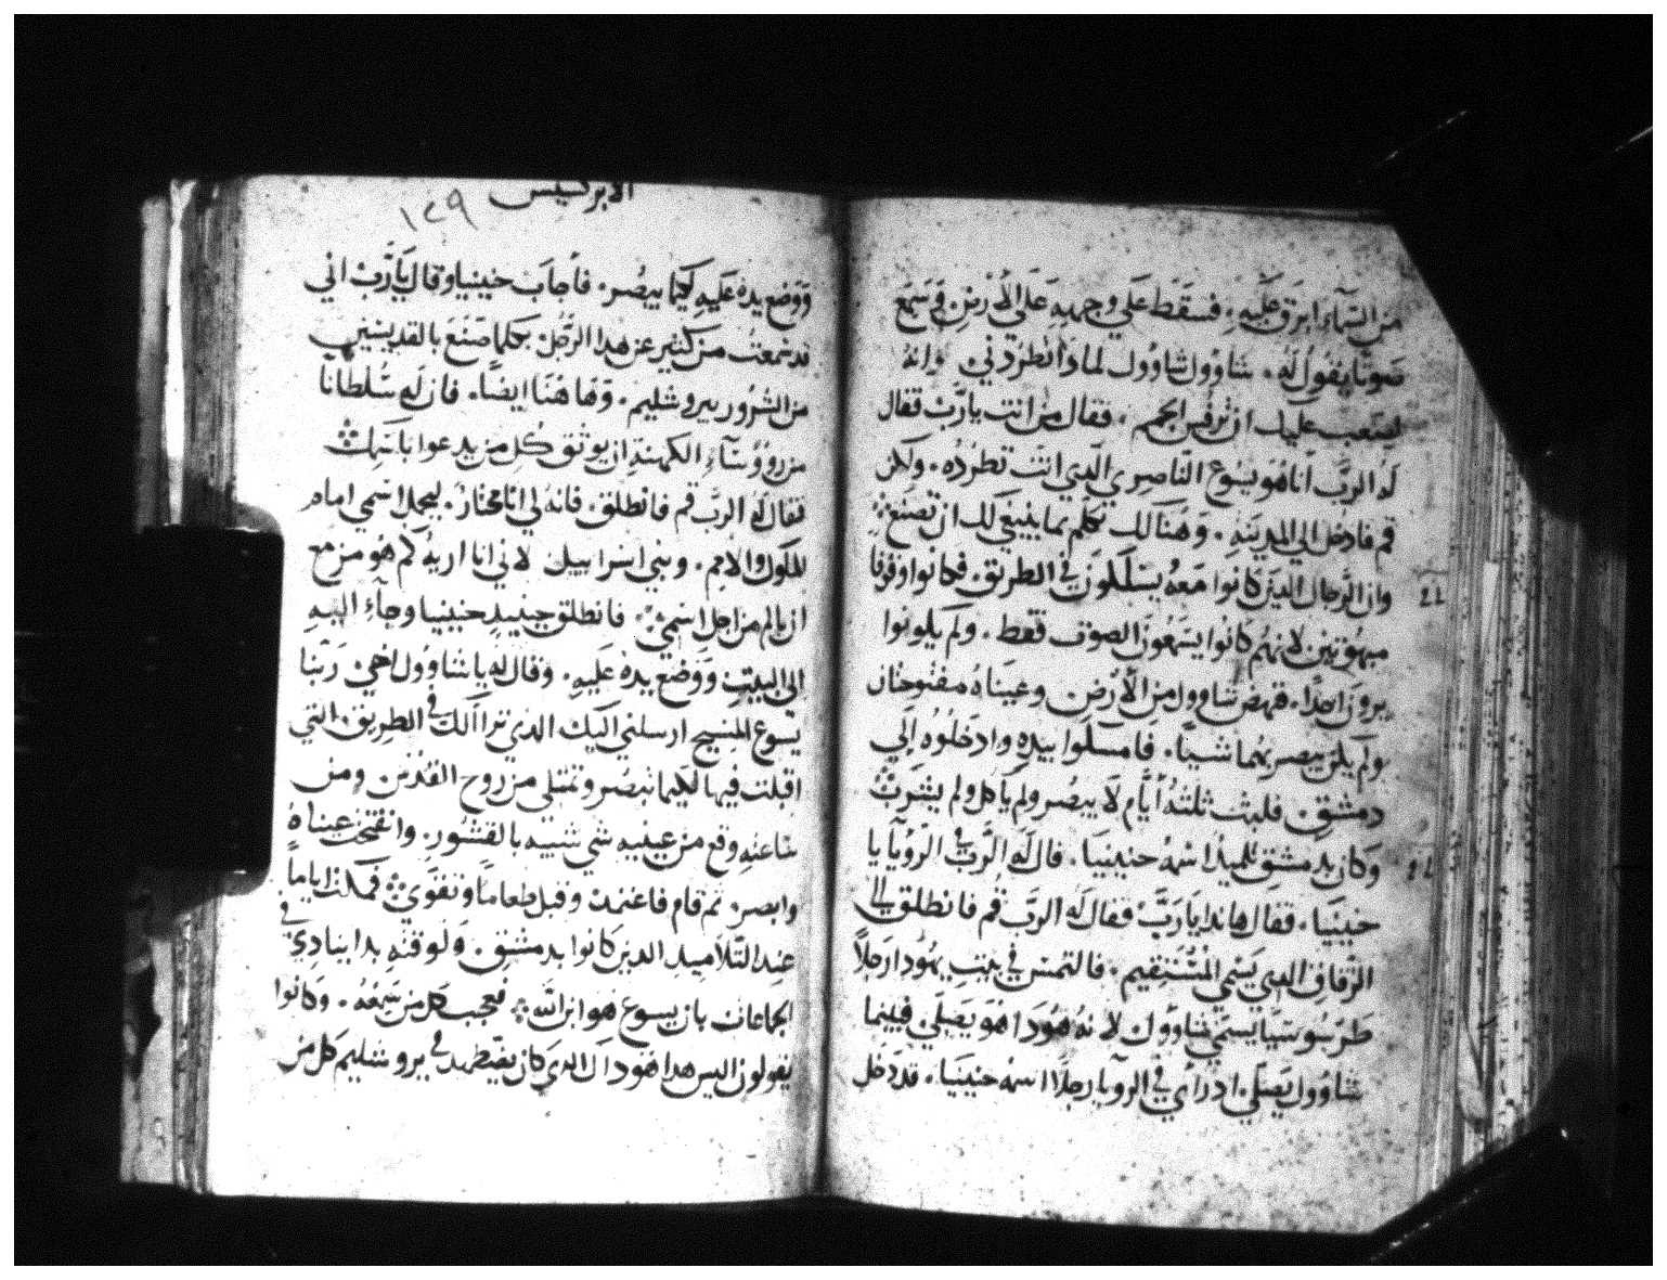 من السمآءِ ابرق عَلَيهِ. فسقَطَ عَلي وجههِ عَلَي الأرضِ وَسَمِعَ
صَوتًا يقولُ لهُ. شاوُول شاوُول لمادَا تطرُدني وانهُ
ليَصَعب عليك ان ترفس المهمز. فقال من انت يارَبّ فقال
لهُ الربّ أنا هُوَ يسُوع النّاصِري الّدِي انتَ تطرُده. ولكن
قم فادخل الي المدينهِ. وَهنَالك تكلم بما ينبغي لك ان تصنع
وان الرّجال الدينَ كانُوا مَعهُ يسَلكونَ في الطريق. فكانوا وقوفا
مبهُوتين لانهُم كانُوا يسمَعُونَ الصَوت فقط. ولم يكونوا
يرونَ احدًا. فنهض شاوول من الأرض. وعينَاهُ مفتوحتَان
ولَم يكن يبصر بهما شَيئًا. فامسَكوا بيدهِ وادخَلُوه إلَي
دمشقِ. فلبث ثلثهُ أيَّام لَا يبصُر ولم يَاكل ولم يشرَبْ
وَكان بدمشق تلميدُ اسمهُ حنينيَا. قال لَهُ الرَّبّ في الرّؤيَا يا
حنينيَا. فقال هاندَا يَا رَبّ فقال لَه الربّ قم فانطلق الي
الزّقاقِ الدي يَسَمي المُسْتَقِيم. فالتمس في بيتِ يهُودا رَجلاً
طَرسُوسيًا يسمّي شاوُول لانهُ هُوَدا هُوَ يَصَلّي فبينما
شاوُول يصَلّي. اد رأي في الرويَا رجلًا اسمهُ حنينيَا. قد دَخل
الابركسيس
١٢٩
وَوَضع يدهُ عَليهِ لكيمَا يبصُر. فأجابَ حنينيا وقال يَا رَبّ اني
قد سَمعتُ من كثير عَن هدا الرّجُل. بكلمَا صَنَعَ بالقديسين
من الشرُور بيروشليم. وَهَا هُنَا ايضًا. فان لهُ سُلطانًا
من رووُسَآءِ الكهنةِ ان يوثق كُل من يدعوا باسمِك
فقال لَهُ الربّ قم فانطلق. فانهُ لي انا مختارُ. ليحمل اسمي امام
الملوك والامم. وبني اسرَاييل لاني انا اريهُ كم هُو مزمع
ان يالم من اجلِ اسمي فانطلق حينيدٍ حنينيا وجآءَ اليهِ
الي البيتِ وَوَضع يدهُ عَليهِ. وَقال لهُ يا شاوُول اخي رَبّنا
يَسوع المسِيح ارسلني اليك الدي ترَااالك في الطريق. التي
اقبلت فيها لكيما تبصُر وتمتلي من روح القُدْس. ومن
سَاعتهِ وقع من عينيه شي شبيه بالقشُور. وانفتحت عيناهُ
وابصر. ثم قام فاعتمد وقبل طعَامًا وتقوّي فمكث اياماً
عند التّلاميد الدين كانوا بدمشق. ولوقتهِ بدا ينادِي في
الجماعَات بان يسوع هو ابن الله فعجب كل من سَمعهُ. وكانوا
يقولون اليس هدا هُوَ داك الدي كان يضطهد في يروشليم كل من